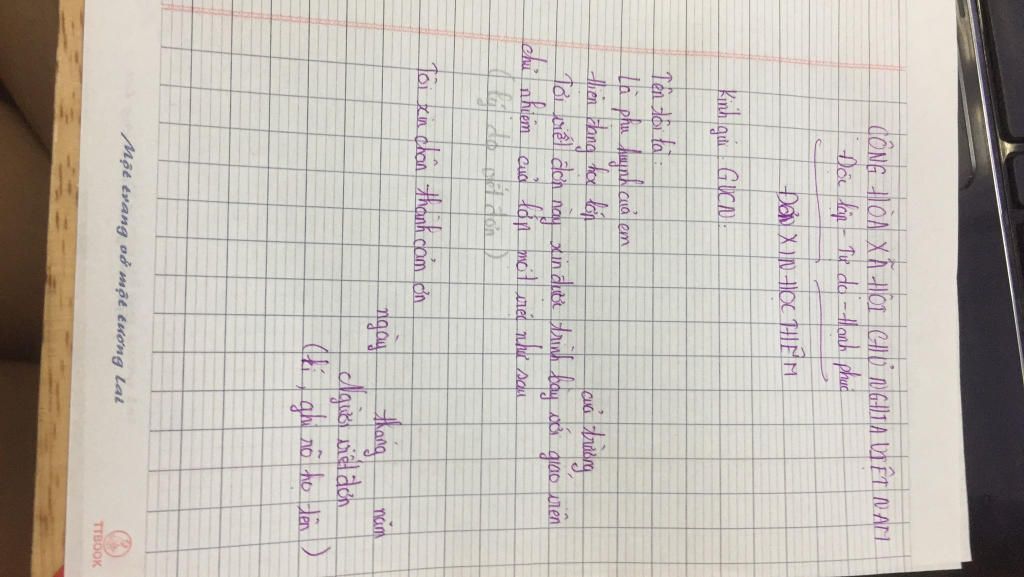 CÔNG HÒA XÃ HỘI CHỦ NGHĨA VIỆT NAM
Độc lập - Tự do - Hạnh phúc
ĐƠN XIN HỌC THÊM
Kính gửi: GVCN:
Tên tôi là:
Là phụ huynh của em
Hiện đang học lớp của trường
Tôi viết đơn này xin được trình bày với giáo viên
chủ nhiệm của lớp một việc như sau
(lý do viết đơn)
Tôi xin chân thành cảm ơn
ngày tháng năm
Người viết đơn
(kí, ghi rõ họ tên)
Một trang vở một tương lai
TTBOOK